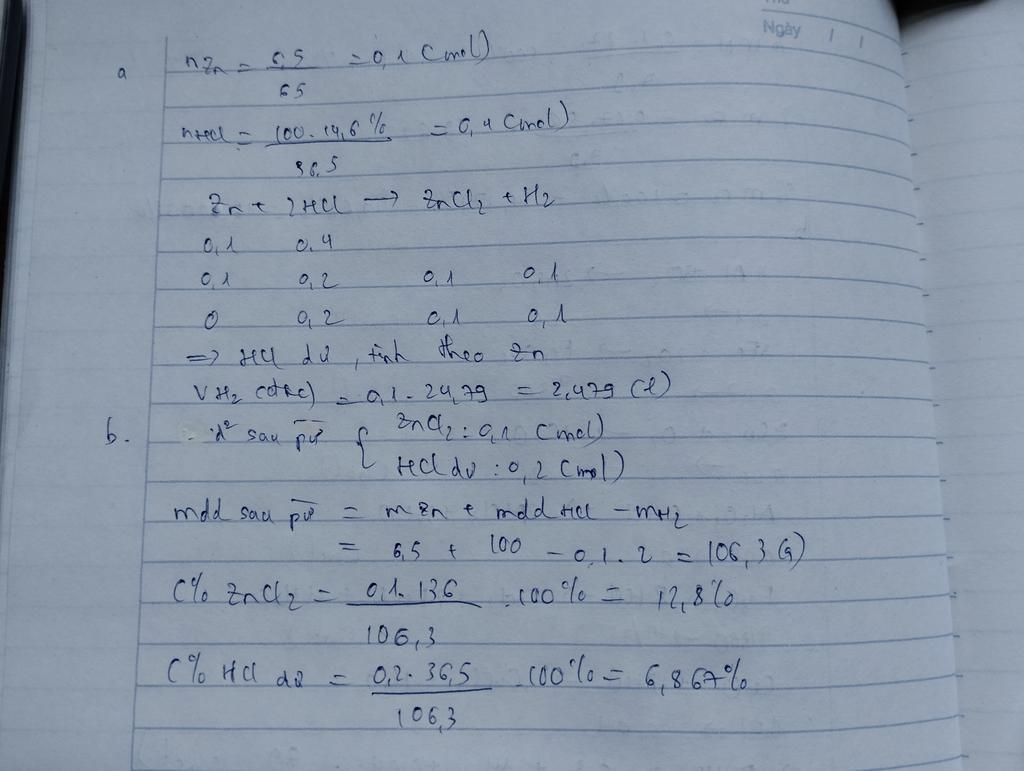 Ngày
a nZn = 6,5 / 65 = 0,1 (mol)
nHCl = 100 . 14,6% / 36,5 = 0,4 (mol)
Zn + 2HCl → ZnCl2 + H2
0,1 0,4
0,1 0,2 0,1 0,1
0 0,2 0,1 0,1
=> HCl dư, tính theo Zn
VH2 (đkc) = 0,1 . 24,79 = 2,479 (l)
b. d² sau pứ { ZnCl2 : 0,1 (mol)
HCl dư : 0,2 (mol)
mdd sau pứ = mZn + mdd HCl - mH2
= 6,5 + 100 - 0,1 . 2 = 106,3 (g)
C% ZnCl2 = 0,1 . 136 / 106,3 . 100% = 12,8%
C% HCl dư = 0,2 . 36,5 / 106,3 . 100% = 6,867%